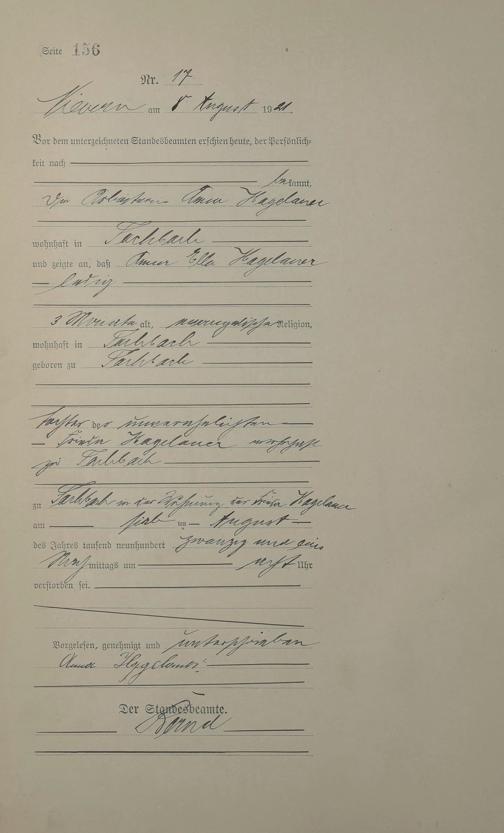 Seite 156
Nr. 17
Nievern am 8 August 1921.
Vor dem unterzeichneten Standesbeamten erschien heute, der Persönlich-
keit nach
bekannt,
die Anna Hagelauer
wohnhaft in Fachbach
und zeigte an, daß Anna Ella Hagelauer
ledig
3 Monate alt, evangelische Religion,
wohnhaft in Fachbach
geboren zu Fachbach
Tochter der unverehelichten
Frieda Hagelauer wohnhaft
zu Fachbach
zu Fachbach in der Wohnung der Frieda Hagelauer
am August
des Jahres tausend neunhundert zwanzig und eins
Nachmittags um acht Uhr
verstorben sei.
Vorgelesen, genehmigt und unterschrieben
Anna
Der Standesbeamte.